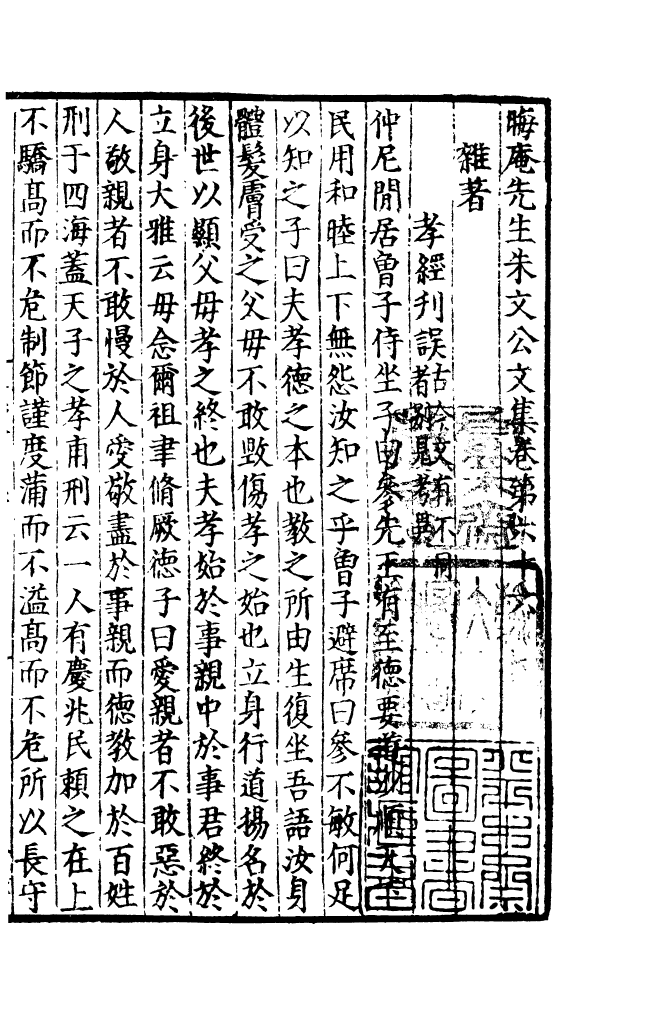 晦庵先生朱文公文集卷第六十六
雜著
孝經刊誤古今文有不同者別見考異
仲尼閒居曾子侍坐子曰參先王有至德要道以順天下
民用和睦上下無怨汝知之乎曾子避席曰參不敏何足
以知之子曰夫孝德之本也教之所由生復坐吾語汝身
體髮膚受之父母不敢毀傷孝之始也立身行道揚名於
後世以顯父母孝之終也夫孝始於事親中於事君終於
立身大雅云毋念爾祖聿脩厥德子曰愛親者不敢惡於
人敬親者不敢慢於人愛敬盡於事親而德教加於百姓
刑于四海蓋天子之孝甫刑云一人有慶兆民賴之在上
不驕高而不危制節謹度滿而不溢高而不危所以長守